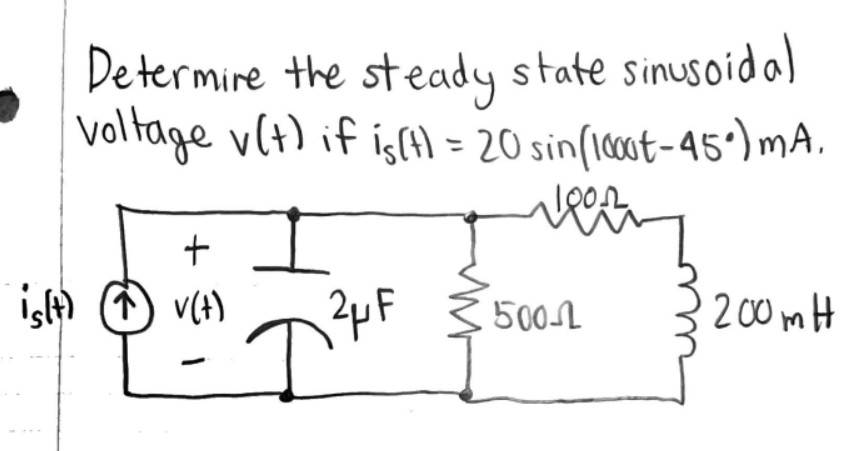 Determine the steady state sinusoidal
voltage v(t) if is(t) = 20 sin(1000t-45°) mA.
100Ω
+
is(t) v(t) 2μF 500Ω 200mH
−